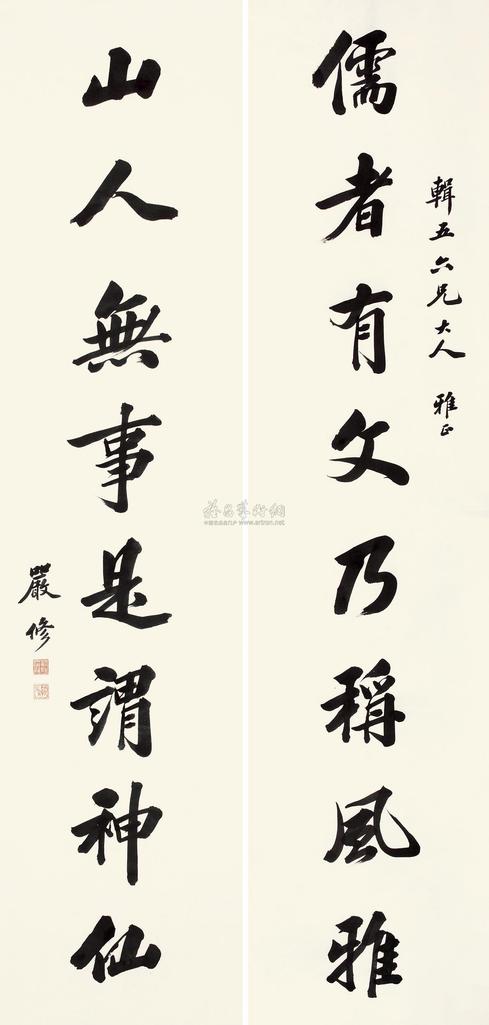 輯五六兄大人 雅正
儒者有文乃稱風雅
山人無事是謂神仙
嚴修
www.artron.net